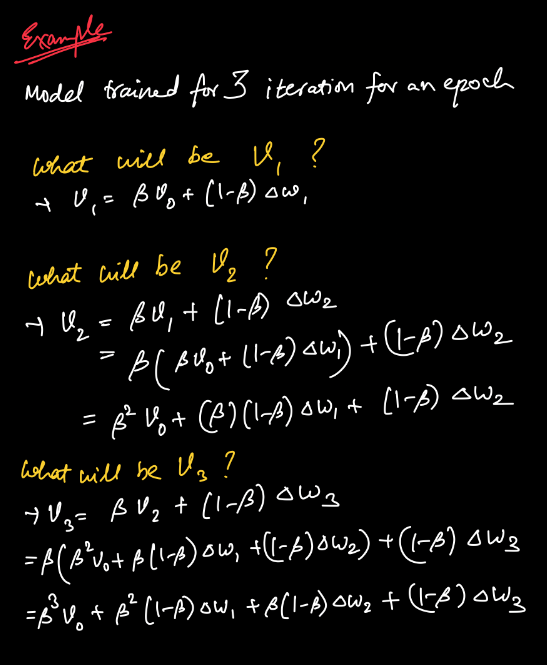 Example
Model trained for 3 iteration for an epoch
What will be V₁ ?
→ V₁ = βV₀ + (1-β) Δw₁
What will be V₂ ?
→ V₂ = βV₁ + (1-β) Δw₂
= β(βV₀ + (1-β) Δw₁) + (1-β) Δw₂
= β² V₀ + (β)(1-β) Δw₁ + (1-β) Δw₂
What will be V₃ ?
→ V₃ = βV₂ + (1-β) Δw₃
= β(β²V₀ + β(1-β) Δw₁ + ((1-β) Δw₂) + (1-β) Δw₃
= β³V₀ + β² (1-β) Δw₁ + β(1-β) Δw₂ + (1-β) Δw₃